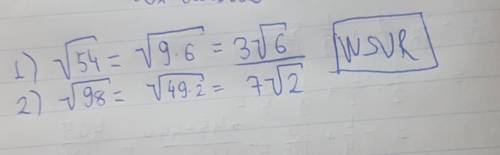 1) √54 = √9·6 = 3√6 WSVR
2) √98 = √49·2 = 7√2